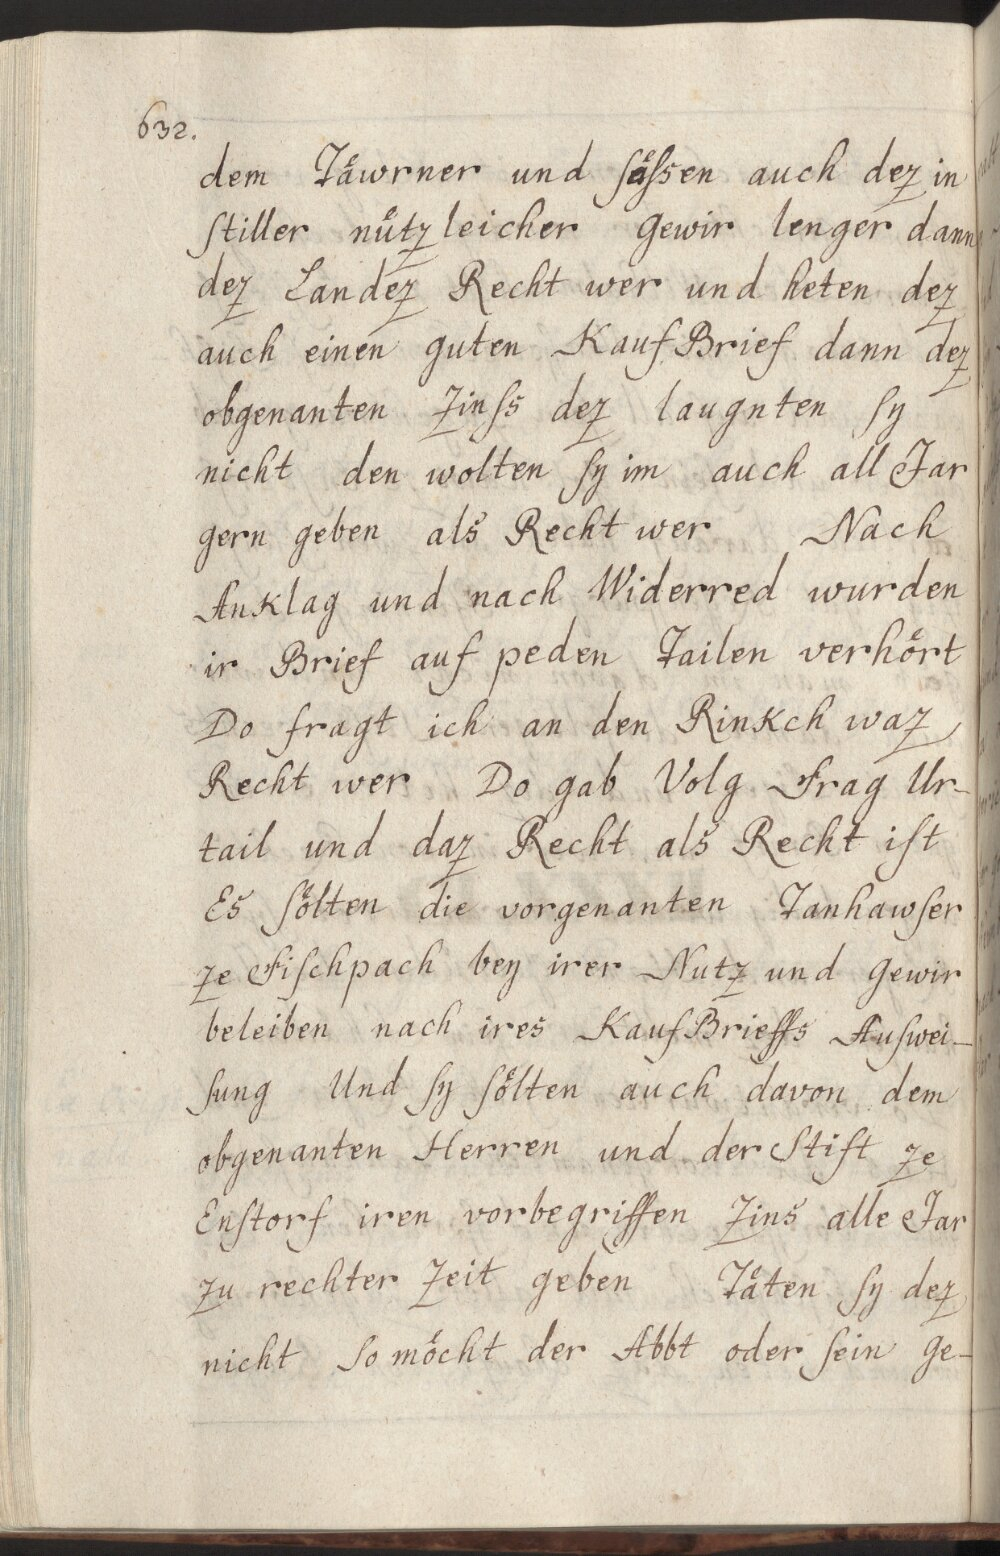 632.
dem Taͤwrner und ſaͤſsen auch dez in
ſtiller nuͤtzleicher Gewir lenger dann
dez Landez Recht wer und heten dez
auch einen guten KaufBrief dann dez
obgenanten Zinſs dez laugnten ſy
nicht den wolten ſy im auch all Jar
gern geben als Recht wer Nach
AnKlag und nach Widerred wurden
ir Brief auf peden Tailen verhoͤrt
Do fragt ich an den RinKch waz
Recht wer Do gab Volg Frag Ur-
tail und daz Recht als Recht iſt
Es ſoͤlten die vorgenanten Tanhawſer
ze Fiſchpach bey irer Nutz und Gewir
beleiben nach ires KaufBrieffs Auſwei-
ſung Und ſy ſoͤlten auch davon dem
obgenanten Herren und der Stift ze
Enſtorf iren vorbegriffen Zins alle Jar
zu rechter Zeit geben Taͤten ſy dez
nicht ſo moͤcht der Abbt oder ſein Ge-